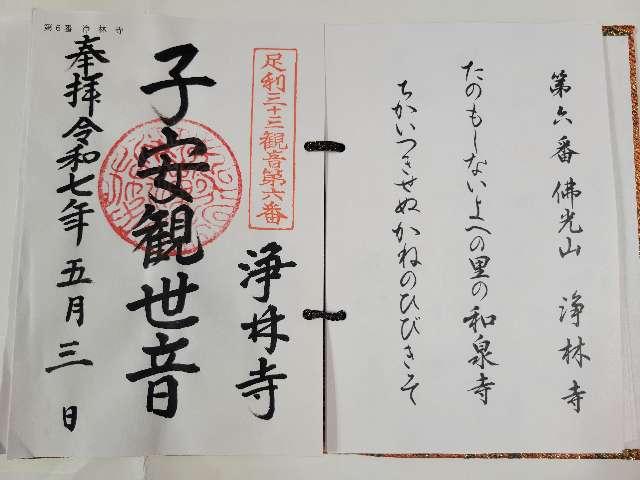 第六番 佛光山 浄林寺
たのもしないよへの里の和泉寺
ちかいつきせぬかねのひびきそ
第6番 浄林寺
足利三十三観音第六番
浄林寺
子安観世音
奉拝 令和七年 五月 三 日